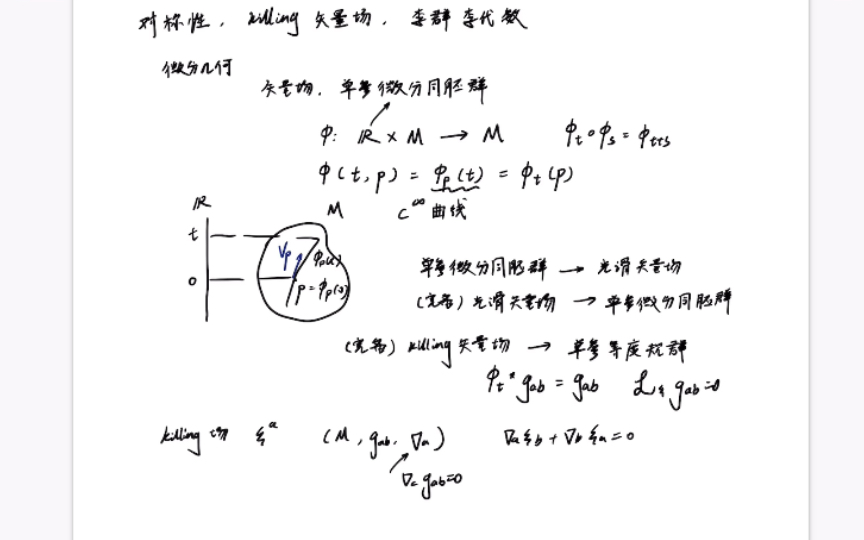 对称性, killing 矢量场, 李群李代数
微分几何
矢量场, 单参微分同胚群
φ: ℝ × M → M φ_t∘φ_s = φ_{t+s}
φ(t, p) = φ_p(t) = φ_t(p)
C^∞ 曲线
ℝ
M
t
V_p φ_p(t)
0
p = φ_p(0)
单参微分同胚群 → 光滑矢量场
(完备) 光滑矢量场 → 单参微分同胚群
(完备) killing 矢量场 → 单参等度规群
φ_t^* g_ab = g_ab ℒ_ξ g_ab = 0
killing 场 ξ^a (M, g_ab, ∇_a) ∇_a ξ_b + ∇_b ξ_a = 0
∇_c g_ab = 0